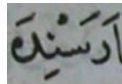 اَرَسْنِدَ